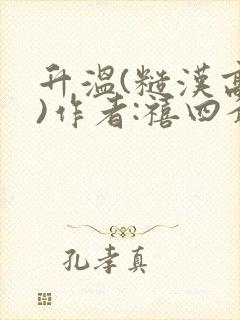 升温(糙漢高
)作者:禧四爺
孔孝真